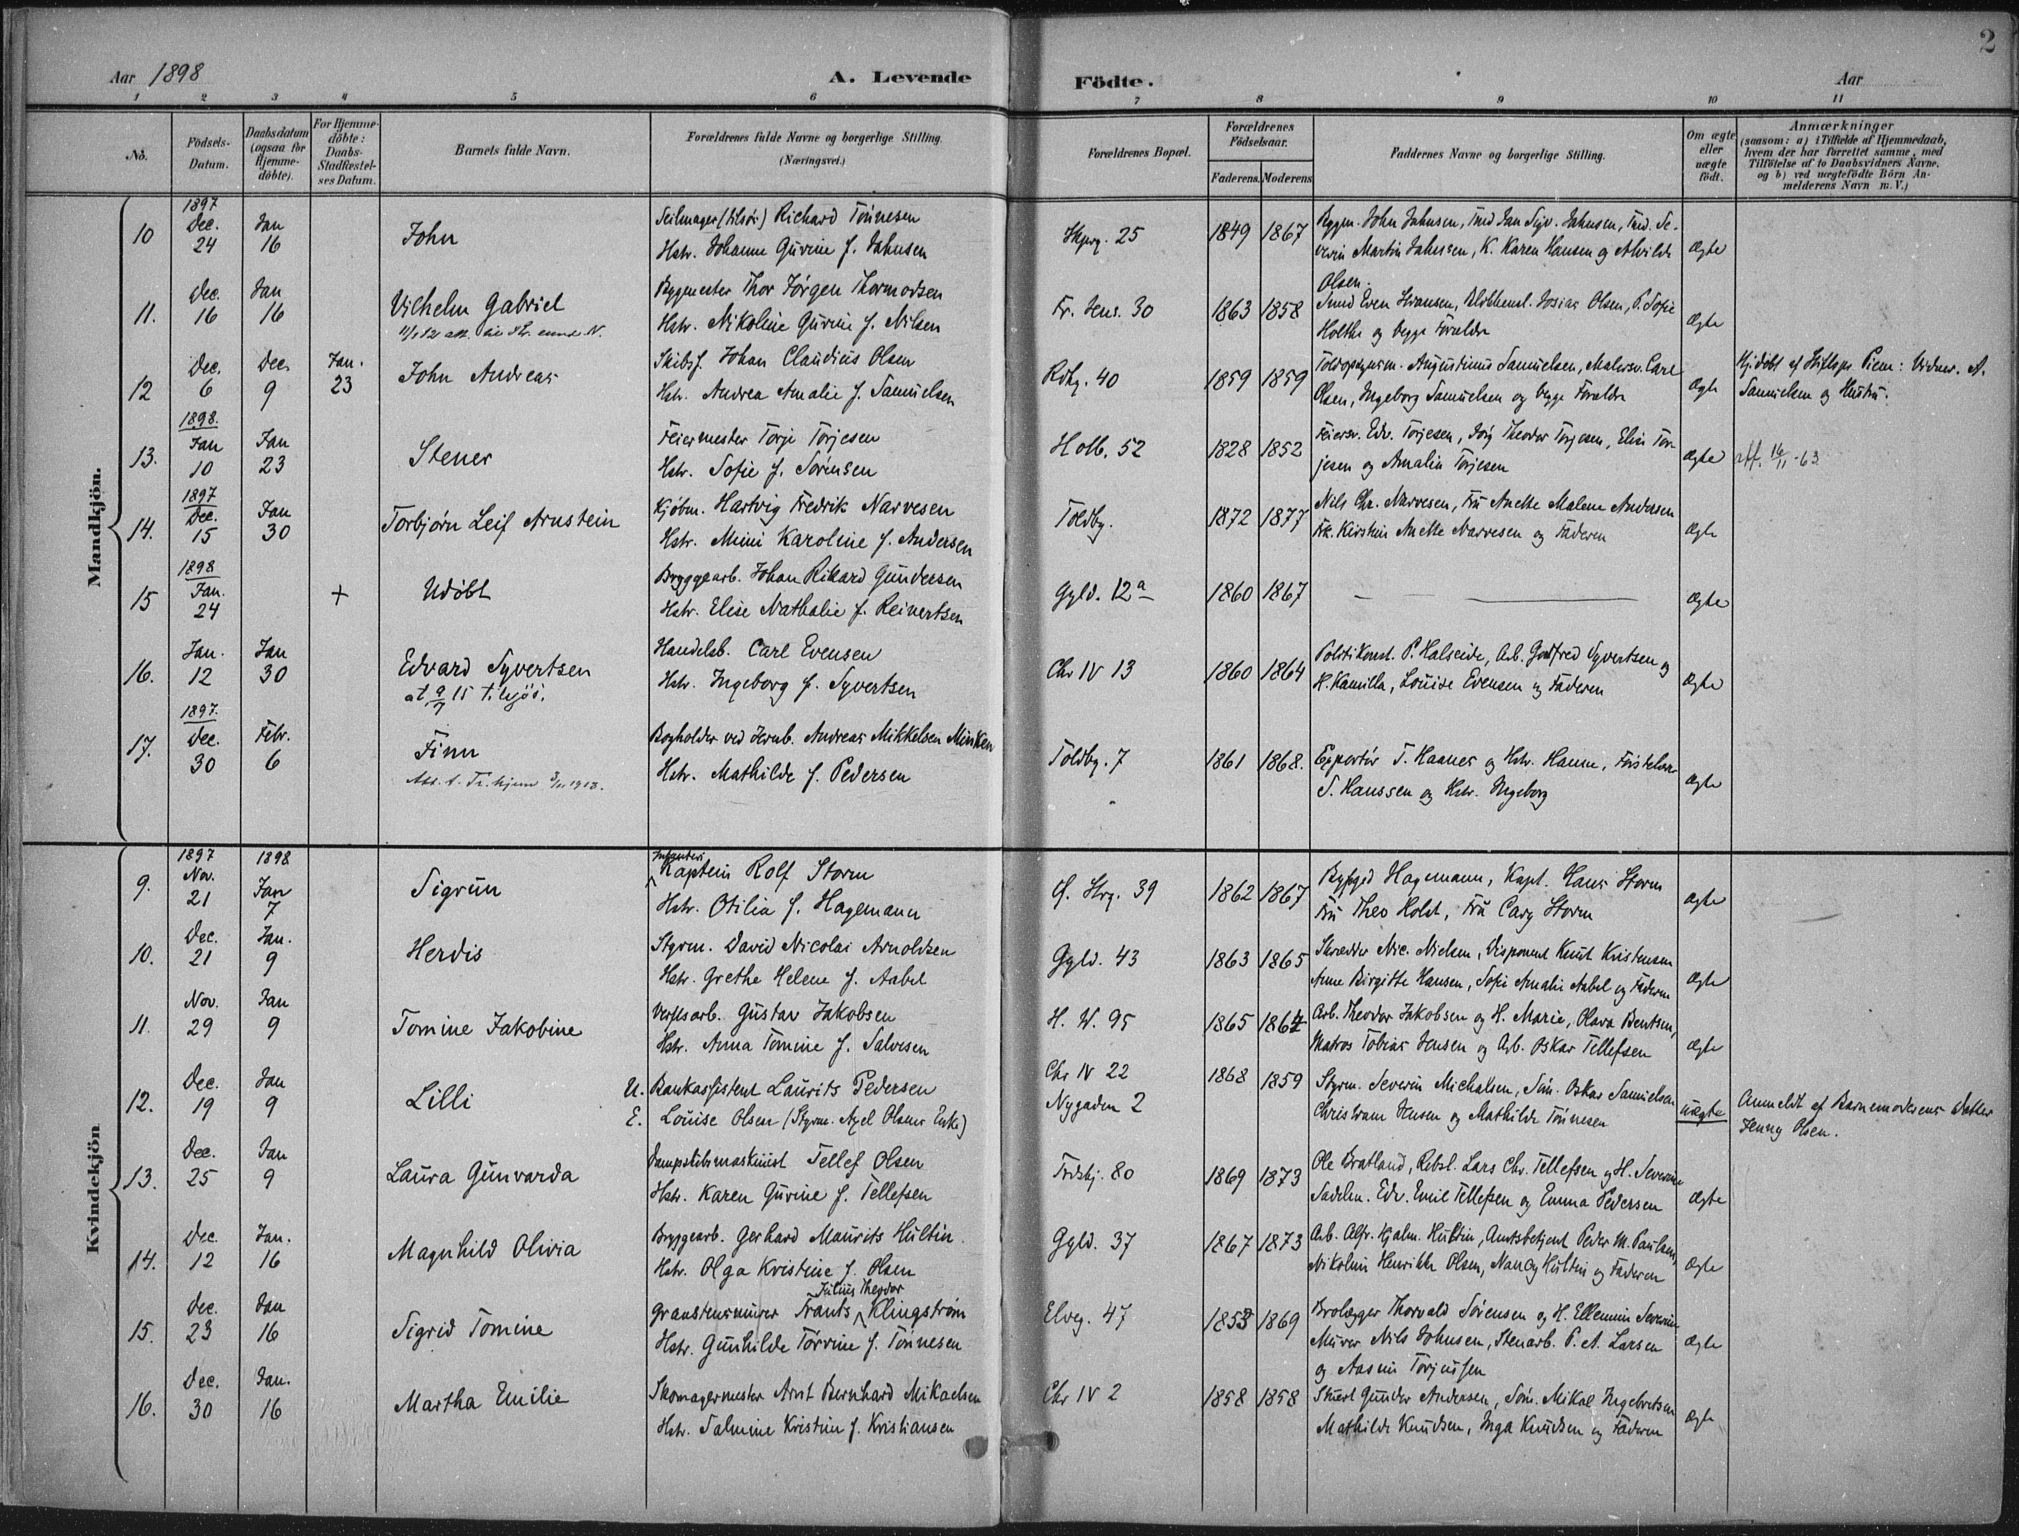 Aar 1898
A. Levende Födte.
Aar
2
1 2 3 4 5 6 7 8 9 10 11
No.
Födsels-Datum.
Daabsdatum (ogsaa for Hjemme-döbte).
For Hjemme-döbte: Daabs-Stadfæstel-ses Datum.
Barnets fulde Navn.
Forældrenes fulde Navne og borgerlige Stilling. (Næringsvei.)
Forældrenes Bopæl.
Forældrenes Födselsaar.
Faderens. Moderens
Faddernes Navne og borgerlige Stilling.
Om ægte eller uægte födt.
Anmærkninger
(saasom: a) i Tilfælde af Hjemmedaab, hvem der har forrettet samme, med Tilföielse af to Daabsvidners Navne, og b) ved uægtefödte Börn An-melderens Navn m. V.)
Mandkjön.
10 1897 Dec. 24 Jan 16 John
Seilmager (tilsös) Richard Tönnesen
Hstr. Johanne Gurine f. Jahnsen
25 1849 1867
Bygm. John Jahnsen, Jan Sigv. Jahnsen,
Martin Jahnsen, K. Karen Hansen og Alvilde
Olsen.
Ægte
11. Dec. 16 Jan 16 Vilhelm Gabriel
Bygmester Thor Jörgen Thormodsen
Hstr. Nikoline Gurine f. Nilsen
30 1863 1858
Even Hansen, Josias Olsen, P. Sofie
Holthe og begge Forældre
Ægte
12 Dec. 6 Dec. 9 Jan. 23 John Andreas
Skibsf. Johan Claudius Olsen
Hstr. Andrea Amalie f. Samuelsen
Rdhg. 40 1859 1859
Augustinus Samuelsen, Malersv. Carl
Olsen, Ingeborg Samuelsen og begge Forældre
Ægte
Hjdöbt af Stiftspr. : Vidner. A.
Samuelsen og Hustru.
13. 1898. Jan 10 Jan 23 Stener
Feiermester Torje Torjesen
Hstr. Sofie f. Sörensen
Holb. 52 1828 1852
Feiersv. Edv. Torjesen, Theodor Torjesen, Elise Tor-
jesen og Amalie Torjesen
Ægte
14. 1897 Dec. 15 Jan 30 Torbjørn Leif Arnstein
Kjöbm. Hartvig Fredrik Narvesen
Hstr. Mimi Karoline f. Andersen
Toldbg. 1872 1877
Nils Chr. Narvesen, Fru Anette Malene Andersen
Frk. Kirstin Anette Narvesen og Faderen
Ægte
15 1898 Jan. 24 + Udöbt
Bryggearb. Johan Rikard Gundersen
Hstr. Elise Nathalie f. Reinertsen
Gyld. 12a 1860 1867
Ægte
16. Jan. 12 Jan 30 Edvard Syvertsen
Handelsb. Carl Evensen
Hstr. Ingeborg f. Syvertsen
Chr IV 13 1860 1864
Politikonst. P. Halseide, Arb. Godfred Syvertsen og
H. Kamilla, Louise Evensen og Faderen
Ægte
17. 1897. Dec. 30 Febr. 6 Finn
Bogholder ved Jernb. Andreas Mikkelsen Minken
Hstr. Mathilde f. Pedersen
Toldbg. 7 1861 1868.
Exportör T. Haanes og Hstr. Hanne,
S. Hanssen og Hstr. Ingeborg
Ægte
Kvindekjön
9. 1897 Nov. 21 1898 Jan 7 Sigrun
Infanteri
Kaptein Rolf Storm
Hstr. Otilia f. Hagemann
39 1862 1867
Byfgd Hagemann, Kapt. Hans Storm
Fru Theo Holst, Fru Cary Storm
Ægte
10. Dec. 21 Jan. 9 Herdis
Styrm. David Nicolai Arnoldsen
Hstr. Grethe Helene f. Aabel
Gyld. 43 1863 1865
Skrædder Nic. Nielsen, Disponent Knut Kristensen
Anne Birgitte Hansen, Sofie Amalie Aabel og Faderen
Ægte
11. Nov. 29 Jan 9 Tomine Jakobine
Verftsarb. Gustav Jakobsen
Hstr. Anna Tomine f. Salvesen
H. W. 95 1865 1864
Arb. Theodor Jakobsen og H. Marie, Olava Bentsen,
Matros Tobias Jensen og Arb. Oskar Tellefsen
Ægte
12. Dec. 19 Jan 9 Lilli
U. Bankassistent Laurits Pedersen
E. Louise Olsen (Styrm. Axel Olsens Enke)
Chr IV 22
Nygaden 2
1868 1859
Styrm. Severin Michalsen, Söm. Oskar Samuelsen
Jensen og Mathilde Tönnesen
uægte
Anmeldt af Barnemoderens Datter
Jenny Olsen.
13. Dec. 25 Jan 9 Laura Gunvarda
Dampskibsmaskinist Tellef Olsen
Hstr. Karen Gurine f. Tellefsen
80 1869 1873
Ole Bratland, Lars Chr. Tellefsen og H. Severine
Sadelm. Edv. Emil Tellefsen og Emma Pedersen
Ægte
14. Dec. 12 Jan. 16 Magnhild Olivia
Bryggearb. Gerhard Maurits Hultin.
Hstr. Olga Kristine f. Olsen
Gyld. 37 1867 1873
Arb. Alfr. Hjalm. Hultin, Amtsbetjent Peder M. Paulsen,
Nikoline Henrikke Olsen, Nancy Hultin og Faderen
Ægte
15. Dec. 23 Jan 16 Sigrid Tomine
Julius Theodor
Granstensmurer Frants Klingström
Hstr. Gunhilde Torvine f. Tönnesen
Elveg. 47 1853 1869
Brolægger Thorvald Sörensen og H. Ellemine Severine
Murer Nils Johnsen, Stenarb. P. A. Larsen
og Aasine Torjussen
Ægte
16. Dec. 30 Jan. 16 Martha Emilie
Skomagermester Arnt Bernhard Mikaelsen
Hstr. Salmine Kristine f. Kristiansen
Chr IV 2 1858 1858
Gunder Andersen, Söm. Mikal Ingebretsen
Mathilde Knudsen, Inga Knudsen og Faderen
Ægte